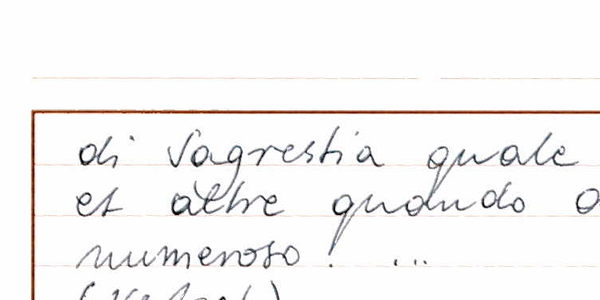 di Sagrestia quale
et altre quando
numeroso! ...